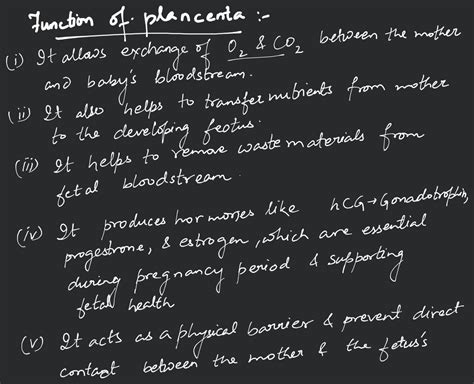 Function of plancenta :-
(i) It allows exchange of O₂ & CO₂ between the mother
and baby's bloodstream.
(ii) It also helps to transfer nutrients from mother
to the developing feotus.
(iii) It helps to remove waste materials from
fetal bloodstream.
(iv) It produces hormones like hCG→Gonadotrophin,
progestrone, & estrogen, which are essential
during pregnancy period & supporting
fetal health
(v) It acts as a physical barrier & prevent direct
contact between the mother & the fetus's